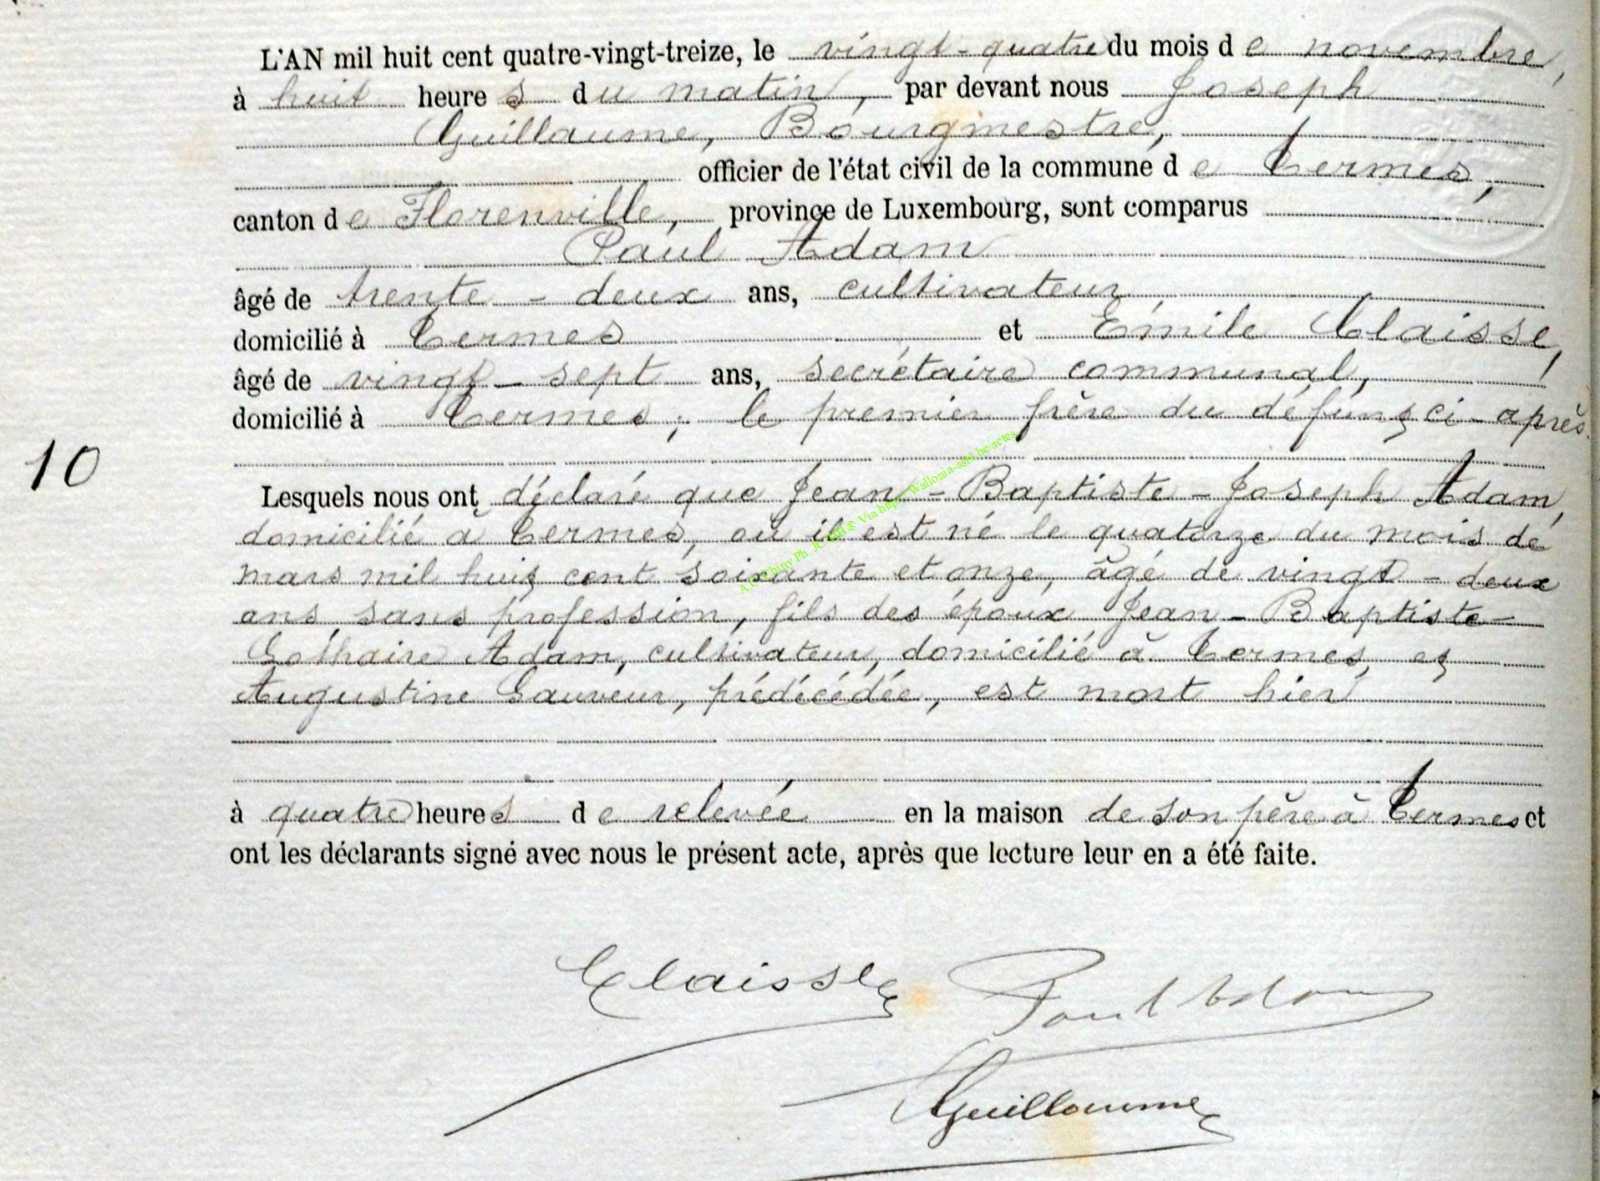 L'AN mil huit cent quatre-vingt-treize, le vingt-quatre du mois de novembre,
à huit heures du matin, par devant nous Joseph
Guillaume, Bourgmestre,
officier de l'état civil de la commune de Termes,
canton de Florenville, province de Luxembourg, sont comparus
Paul Adam
âgé de trente-deux ans, cultivateur
domicilié à Termes et Émile Claisse,
âgé de vingt-sept ans, secrétaire communal,
domicilié à Termes; le premier frère du défunt ci-après.
10
Lesquels nous ont déclaré que Jean-Baptiste-Joseph Adam,
domicilié à Termes, où il est né le quatorze du mois de
mars mil huit cent soixante et onze, âgé de vingt-deux
ans sans profession, fils des époux Jean-Baptiste-
Lothaire Adam, cultivateur, domicilié à Termes, et
Augustine Sauveur, prédécédée, est mort hier
à quatre heures de relevée en la maison de son père à Termes et
ont les déclarants signé avec nous le présent acte, après que lecture leur en a été faite.
Claisse Paul Adam
Guillaume